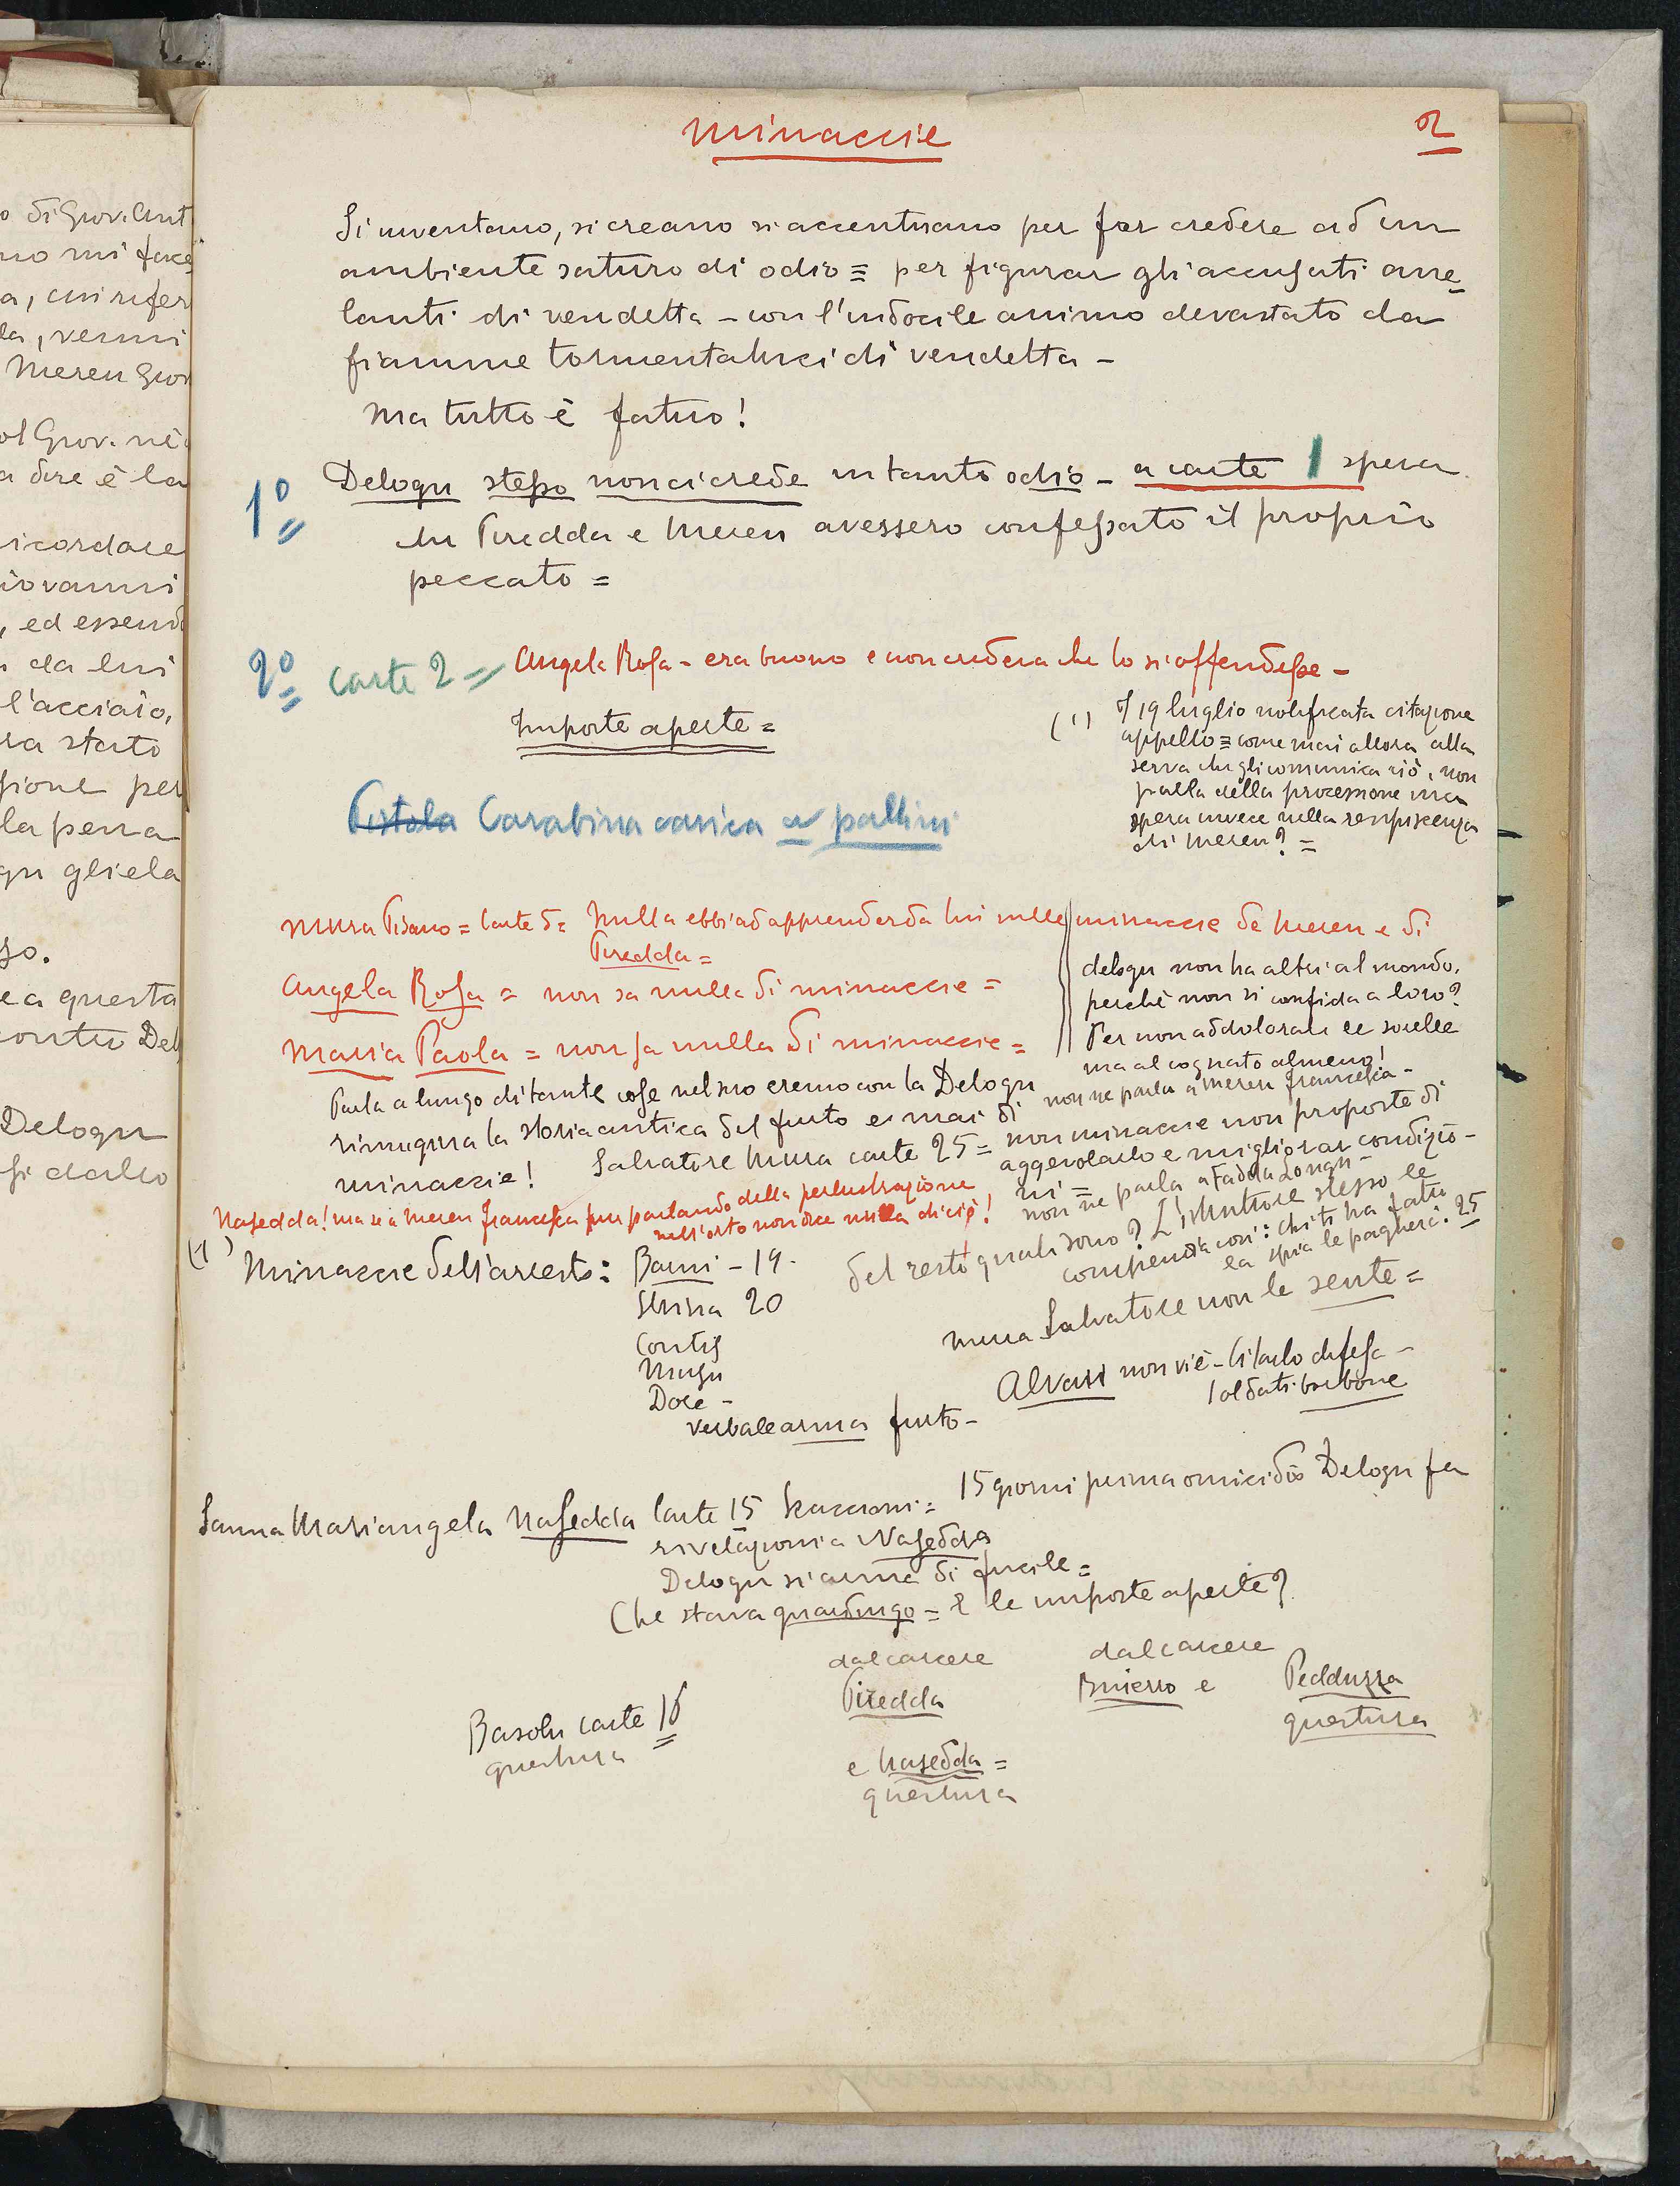 o di Giov. Ant
no mi fece
a, cui rifer
la, venni
Mereu Giov
ol Giov. nè
a dire è la
icordare
iovanni
, ed essend
da lui
l'acciaio,
ra stato
sione per
la pena
gu gliela
so.
e a questa
contro Del
Delogu
si dallo
minaccie
2
Si inventano, si creano si accentuano per far credere ad un
ambiente saturo di odio = per figurar gli accusati ane=
lanti di vendetta - con l'indocile animo devastato da
fiamme tormentatrici di vendetta -
Ma tutto è fatuo!
1º Delogu stesso non ci crede in tanto odio - a carte 1 spera
che Piredda e Mereu avessero confessato il proprio
peccato =
2º carte 2 = Angela Rosa - era buono e non credeva che lo si offendesse -
Imposte aperte =
(1) Il 19 luglio notificata citazione
appello = come mai allora alla
serva che gli comunica ciò, non
parla della processione ma
spera invece nella resipiscenza
di Mereu? =
Pistola Carabina carica a pallini
Mura Pisano = carte 5 = Nulla ebbi ad apprender da lui sulle minaccie de Mereu e di
Piredda =
Angela Rosa = non sa nulla di minaccie =
Maria Paola = non sa nulla di minaccie =
delogu non ha altri al mondo,
perchè non si confida a loro?
Per non addolorare le sorelle
ma al cognato almeno!
non ne parla a Mereu Francesca -
Parla a lungo di tante cose nel suo eremo con la Delogu
rimugina la storia antica del furto e mai di
minaccie!
Salvatore Mura carte 25 = non minaccie non proposte di
aggevolarlo e migliorar condizio-
ni =
non ne parla a Fadda Longu -
Nasedda! ma se a Mereu Francesca pur parlando della perlustrazione
nell'orto non dice nulla di ciò!
(1) Minaccie dell'arresto: Banni - 19.
20
Contis
Musu
Dore -
verbale arma furto -
del resto quali sono? L'istruttore stesso le
compendia così: chi ti ha fatto
la spia le pagherà. 25
Mura Salvatore non le sente =
Alvau non vi è - Citarlo difesa -
Sanna Mariangela Nasedda carte 15 = 15 giorni prima omicidio Delogu fa
rivelazioni a Nasedda
Delogu si arma di fucile =
Che stava guardingo = E le imposte aperte?
dal carcere
Piredda
e Nasedda =
questura
dal carcere
e Pedduzza
questura
Basolu carte 16
questura